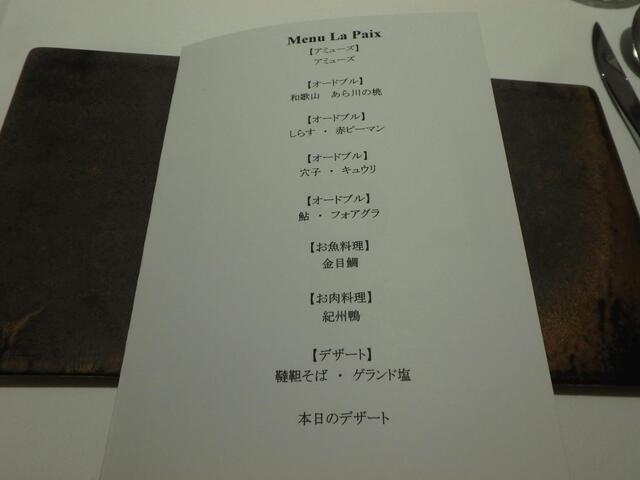 Menu La Paix
【アミューズ】
アミューズ
【オードブル】
和歌山　あら川の桃
【オードブル】
しらす ・ 赤ピーマン
【オードブル】
穴子 ・ キュウリ
【オードブル】
鮎 ・ フォアグラ
【お魚料理】
金目鯛
【お肉料理】
紀州鴨
【デザート】
韃靼そば ・ ゲランド塩
本日のデザート